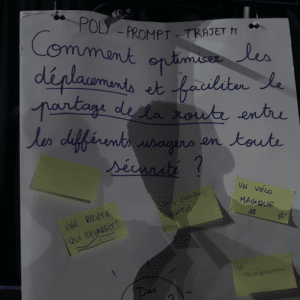 POLY - PROMPT - TRAJET !!
Comment optimiser les
déplacements et faciliter le
partage de la route entre
les différents usagers en toute
sécurité ?
UN VÉLO
MAGIQUE
UNE ROUTE
QUI
Des